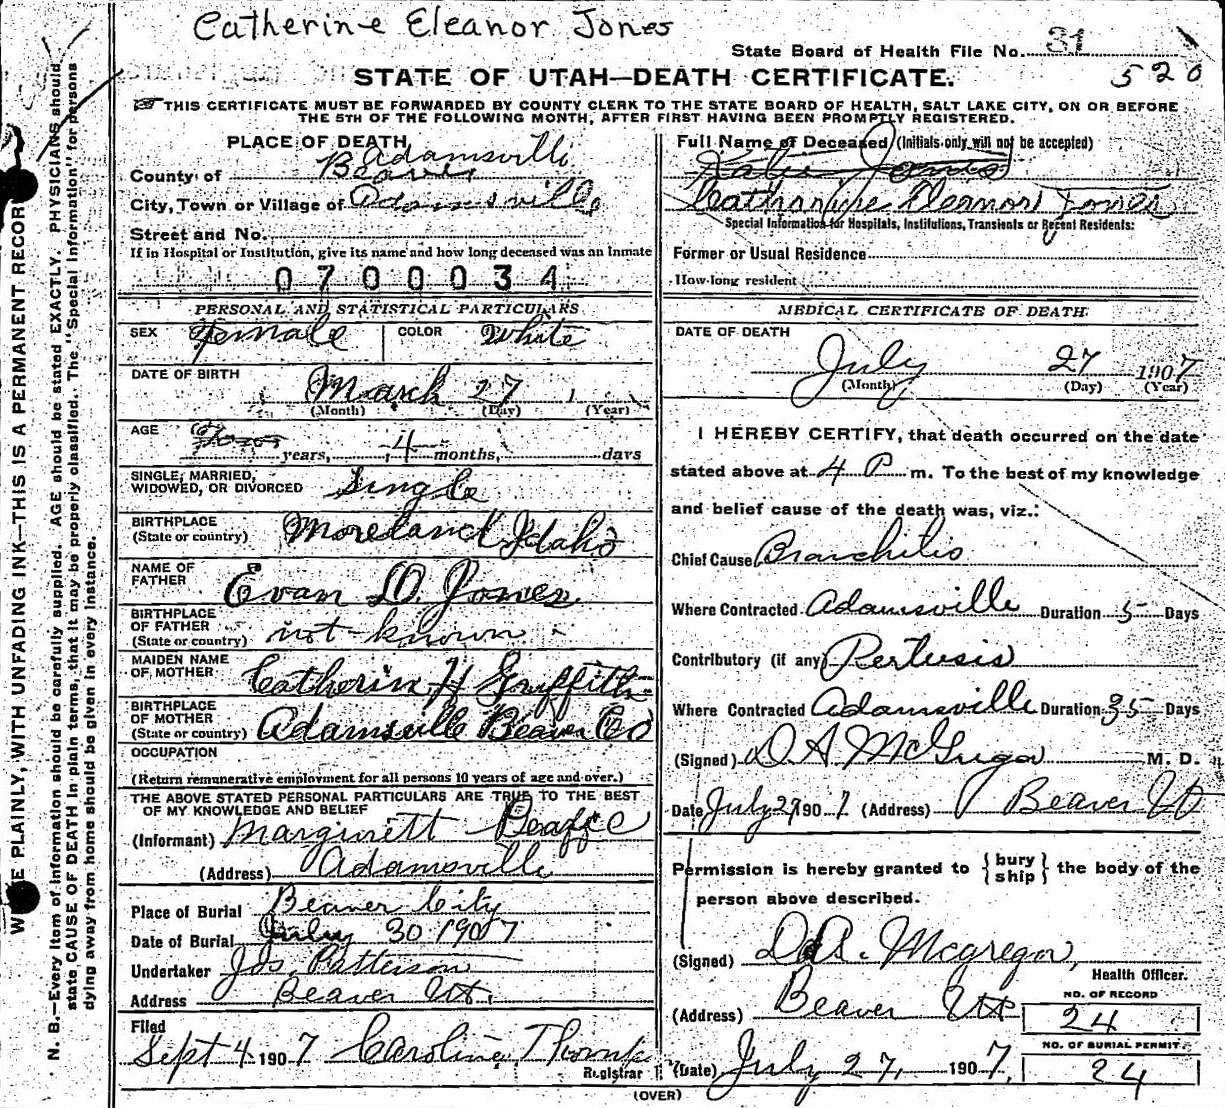 Catherine Eleanor Jones
State Board of Health File No. 31
520
STATE OF UTAH—DEATH CERTIFICATE.
THIS CERTIFICATE MUST BE FORWARDED BY COUNTY CLERK TO THE STATE BOARD OF HEALTH, SALT LAKE CITY, ON OR BEFORE
THE 5TH OF THE FOLLOWING MONTH, AFTER FIRST HAVING BEEN PROMPTLY REGISTERED.
W E PLAINLY, WITH UNFADING INK—THIS IS A PERMANENT RECOR
N. B.—Every item of information should be carefully supplied. AGE should be stated EXACTLY. PHYSICIANS should
state CAUSE OF DEATH in plain terms, that it may be properly classified. The "Special Information" for persons
dying away from home should be given in every instance.
PLACE OF DEATH
Adamsville
County of Beaver
City, Town or Village of Adamsville
Street and No.
If in Hospital or Institution, give its name and how long deceased was an inmate
0700034
PERSONAL AND STATISTICAL PARTICULARS
SEX Female COLOR White
DATE OF BIRTH
March 27
(Month) (Day) (Year)
AGE
years, 4 months, days
SINGLE, MARRIED,
WIDOWED, OR DIVORCED Single
BIRTHPLACE
(State or country) Moreland Idaho
NAME OF
FATHER Evan D. Jones
BIRTHPLACE
OF FATHER
(State or country) not known
MAIDEN NAME
OF MOTHER Catherin H Griffith
BIRTHPLACE
OF MOTHER
(State or country) Adamsville Beaver Co
OCCUPATION
(Return remunerative employment for all persons 10 years of age and over.)
THE ABOVE STATED PERSONAL PARTICULARS ARE TRUE TO THE BEST
OF MY KNOWLEDGE AND BELIEF
(Informant)
(Address) Adamsville
Place of Burial Beaver City
Date of Burial July 30 1907
Undertaker Jos. Patterson
Address Beaver Ut.
Filed
Sept 4 1907 Caroline
Registrar
Full Name of Deceased (Initials only will not be accepted)
Katie Jones
Catharine Elennor Jones
Special Information for Hospitals, Institutions, Transients or Recent Residents:
Former or Usual Residence
How long resident
MEDICAL CERTIFICATE OF DEATH
DATE OF DEATH
July 27 1907
(Month) (Day) (Year)
I HEREBY CERTIFY, that death occurred on the date
stated above at 4 P m. To the best of my knowledge
and belief cause of the death was, viz.:
Chief Cause Bronchitis
Where Contracted Adamsville Duration 5 Days
Contributory (if any) Pertusis
Where Contracted Adamsville Duration 35 Days
(Signed) D A McGregor M. D.
Date July 27 1907 (Address) Beaver Ut
Permission is hereby granted to { bury ship } the body of the
person above described.
(Signed) D. A. Mcgregor,
Health Officer.
(Address) Beaver Ut
NO. OF RECORD
24
NO. OF BURIAL PERMIT
24
(Date) July 27, 1907.
(OVER)